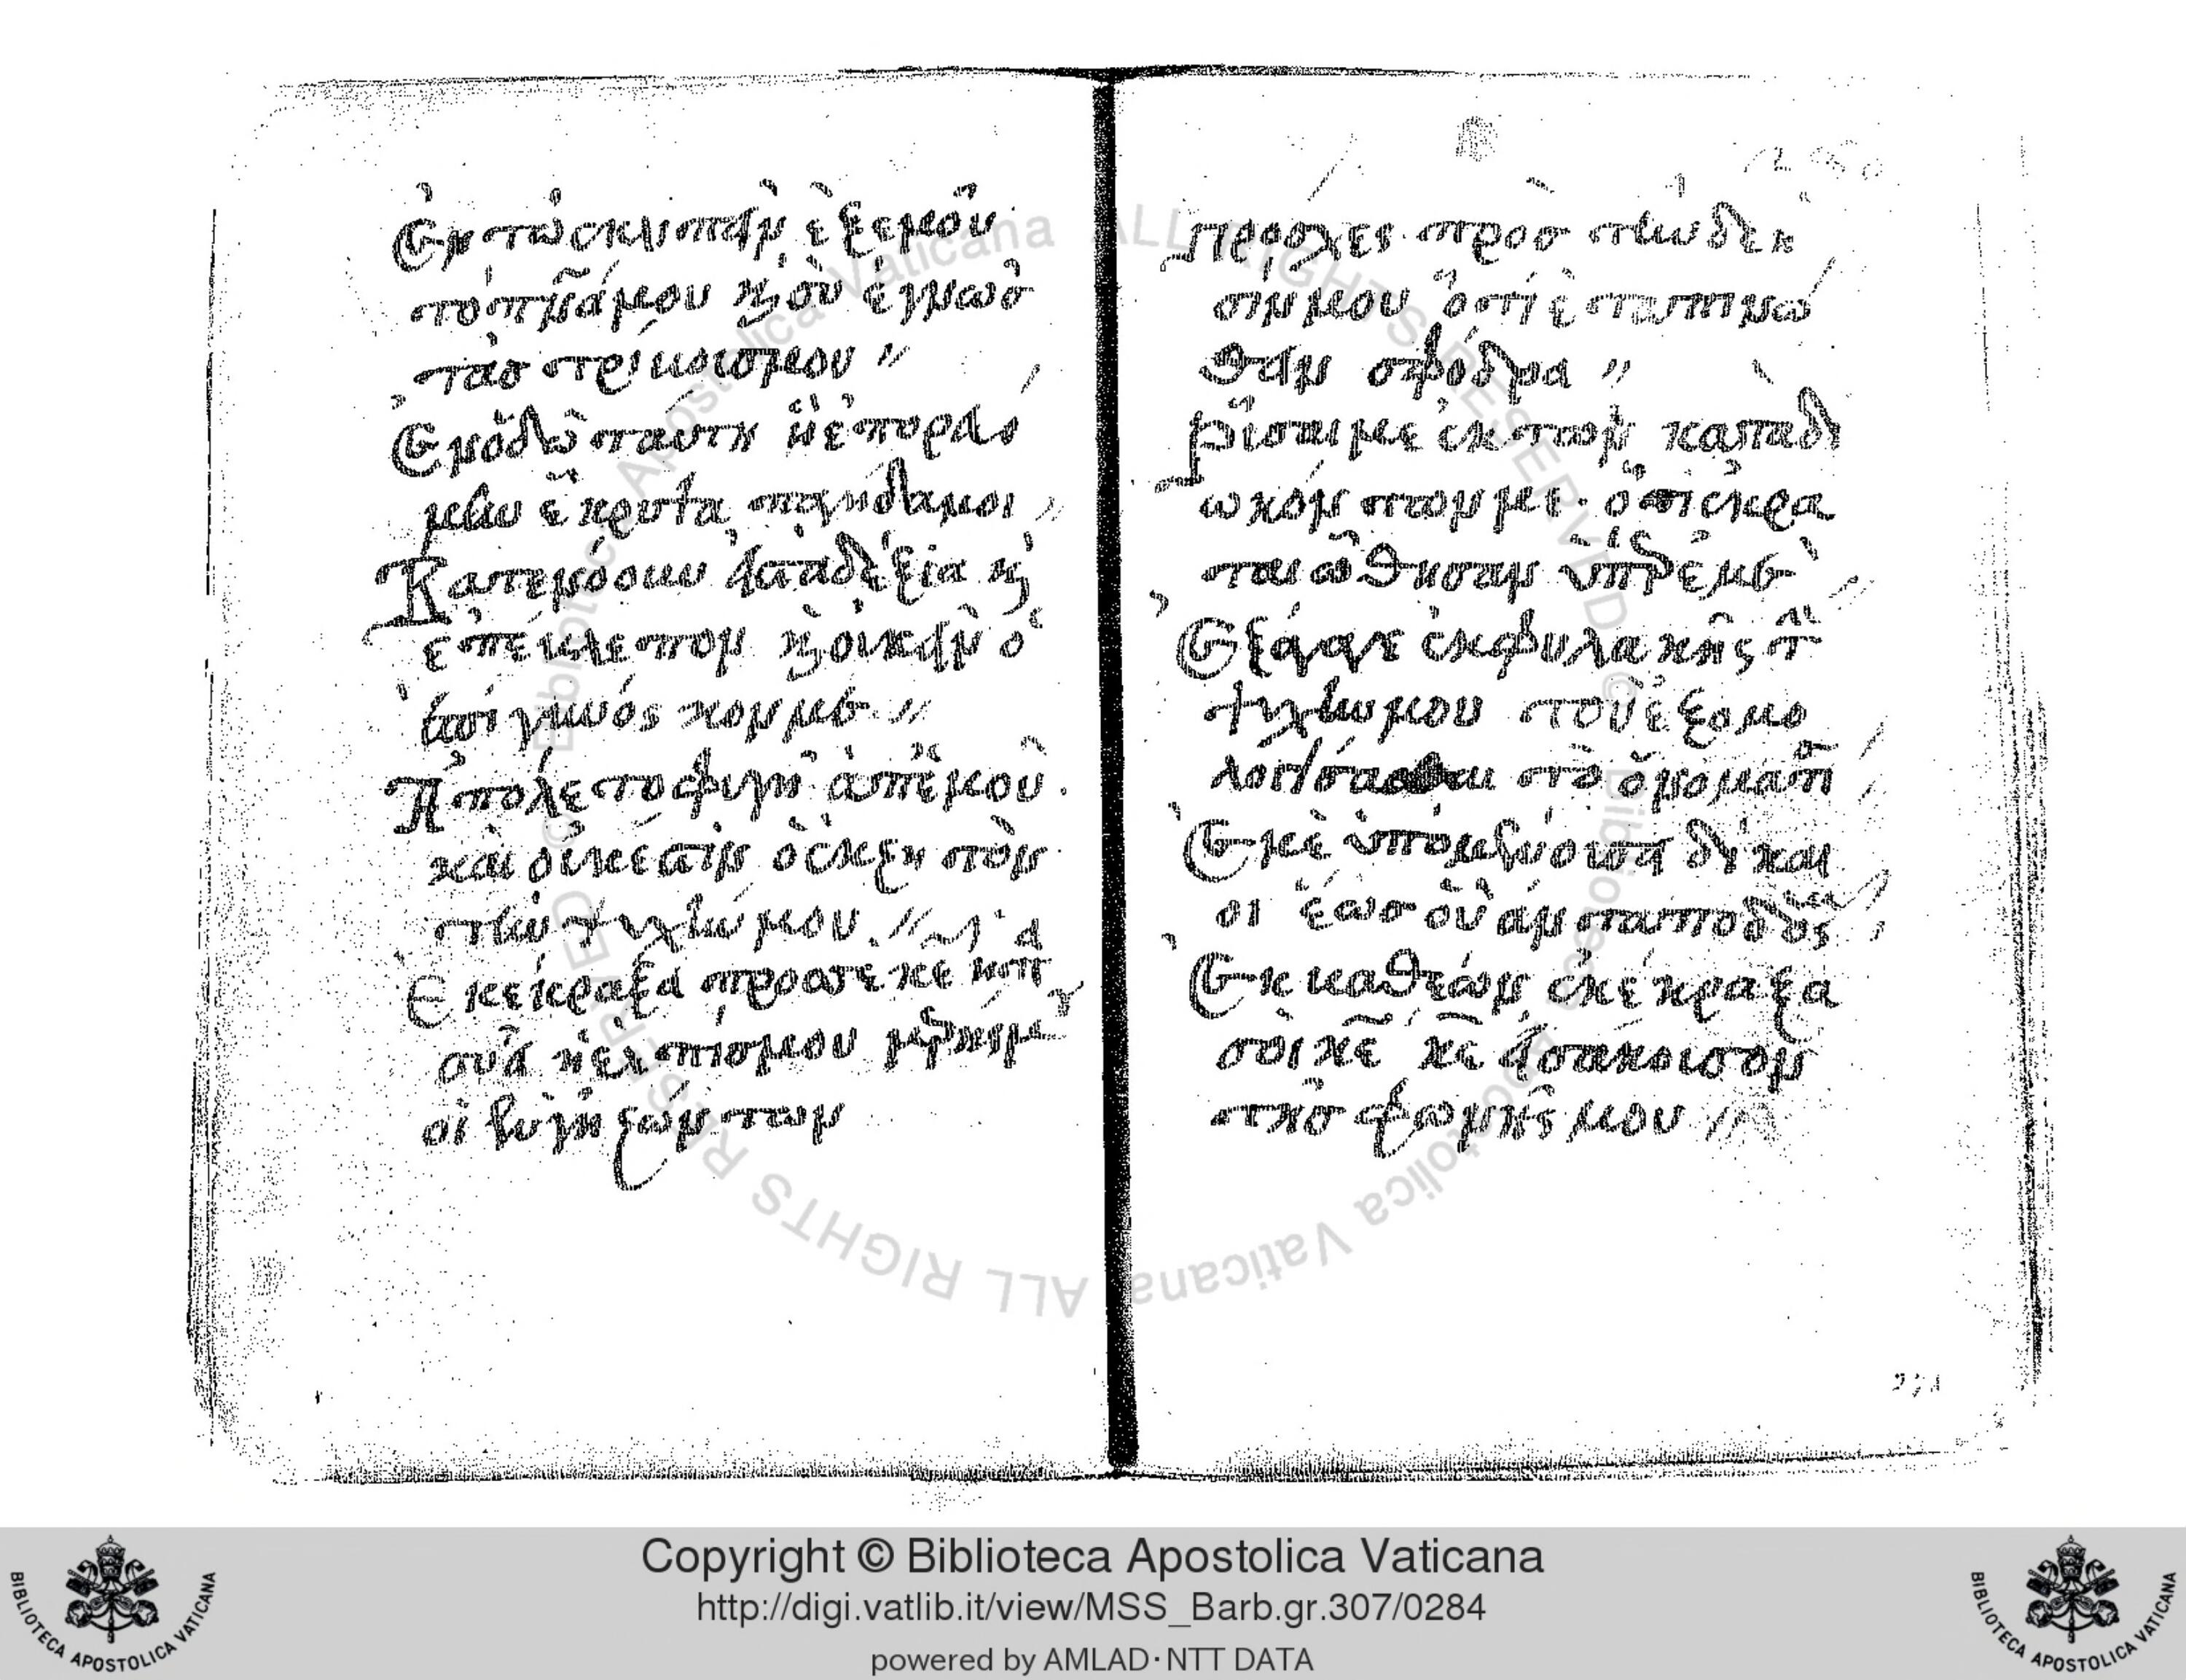 Ἐν τῶ ἐκλιπεῖν ἐξ ἐμοῦ
τὸ πν̅ά μου καὶ σὺ ἔγνωσ
τὰσ τρίβουσ μου //
Ἐν ὁδῶ ταύτη ἧ ἐπορευό
μην ἔκρυψαν παγίδα μοι
Κατενόουν εἰς τὰ δεξιὰ καὶ
ἐπέβλεπον καὶ οὐκ ἦν ὁ
ἐπιγινώσκων με //
Ἀπόλετο φυγὴ ἀπ' ἐμοῦ
καὶ οὐκ ἔστιν ὁ ἐκζητὸν
τὴν ψυχήν μου //
Ἐκέκραξα πρὸσ σε κε̅ εἶπα
σὺ εἶ ἡ ἐλπίσ μου μερίσ μου
ἐν γῆ ζώντων
Πρόσχες πρὸσ τὴν δέη
σίν μου ὅτι ἐταπεινώ
θην σφόδρα //
Ρῦσαί με ἐκ τῶν καταδι
ωκόντων με· ὅτι ἐκρα
ταιώθησαν ὑπὲρ ἐμέ
Ἐξάγαγε ἐκ φυλακῆς τὴν
ψυχήν μου τοῦ ἐξομο
λογήσασθαι τῶ ὀνόματί
Ἐμὲ ὑπομενοῦσι δίκαι
οι ἕωσ οὗ ἀνταποδῶς
Ἐκ βαθέων ἐκέκραξα
σοὶ κε̅ κε̅ εἰσάκουσον
τῆσ φωνῆς μου //
Copyright © Biblioteca Apostolica Vaticana
http://digi.vatlib.it/view/MSS_Barb.gr.307/0284
powered by AMLAD·NTT DATA
BIBLIOTECA APOSTOLICA VATICANA
BIBLIOTECA APOSTOLICA VATICANA